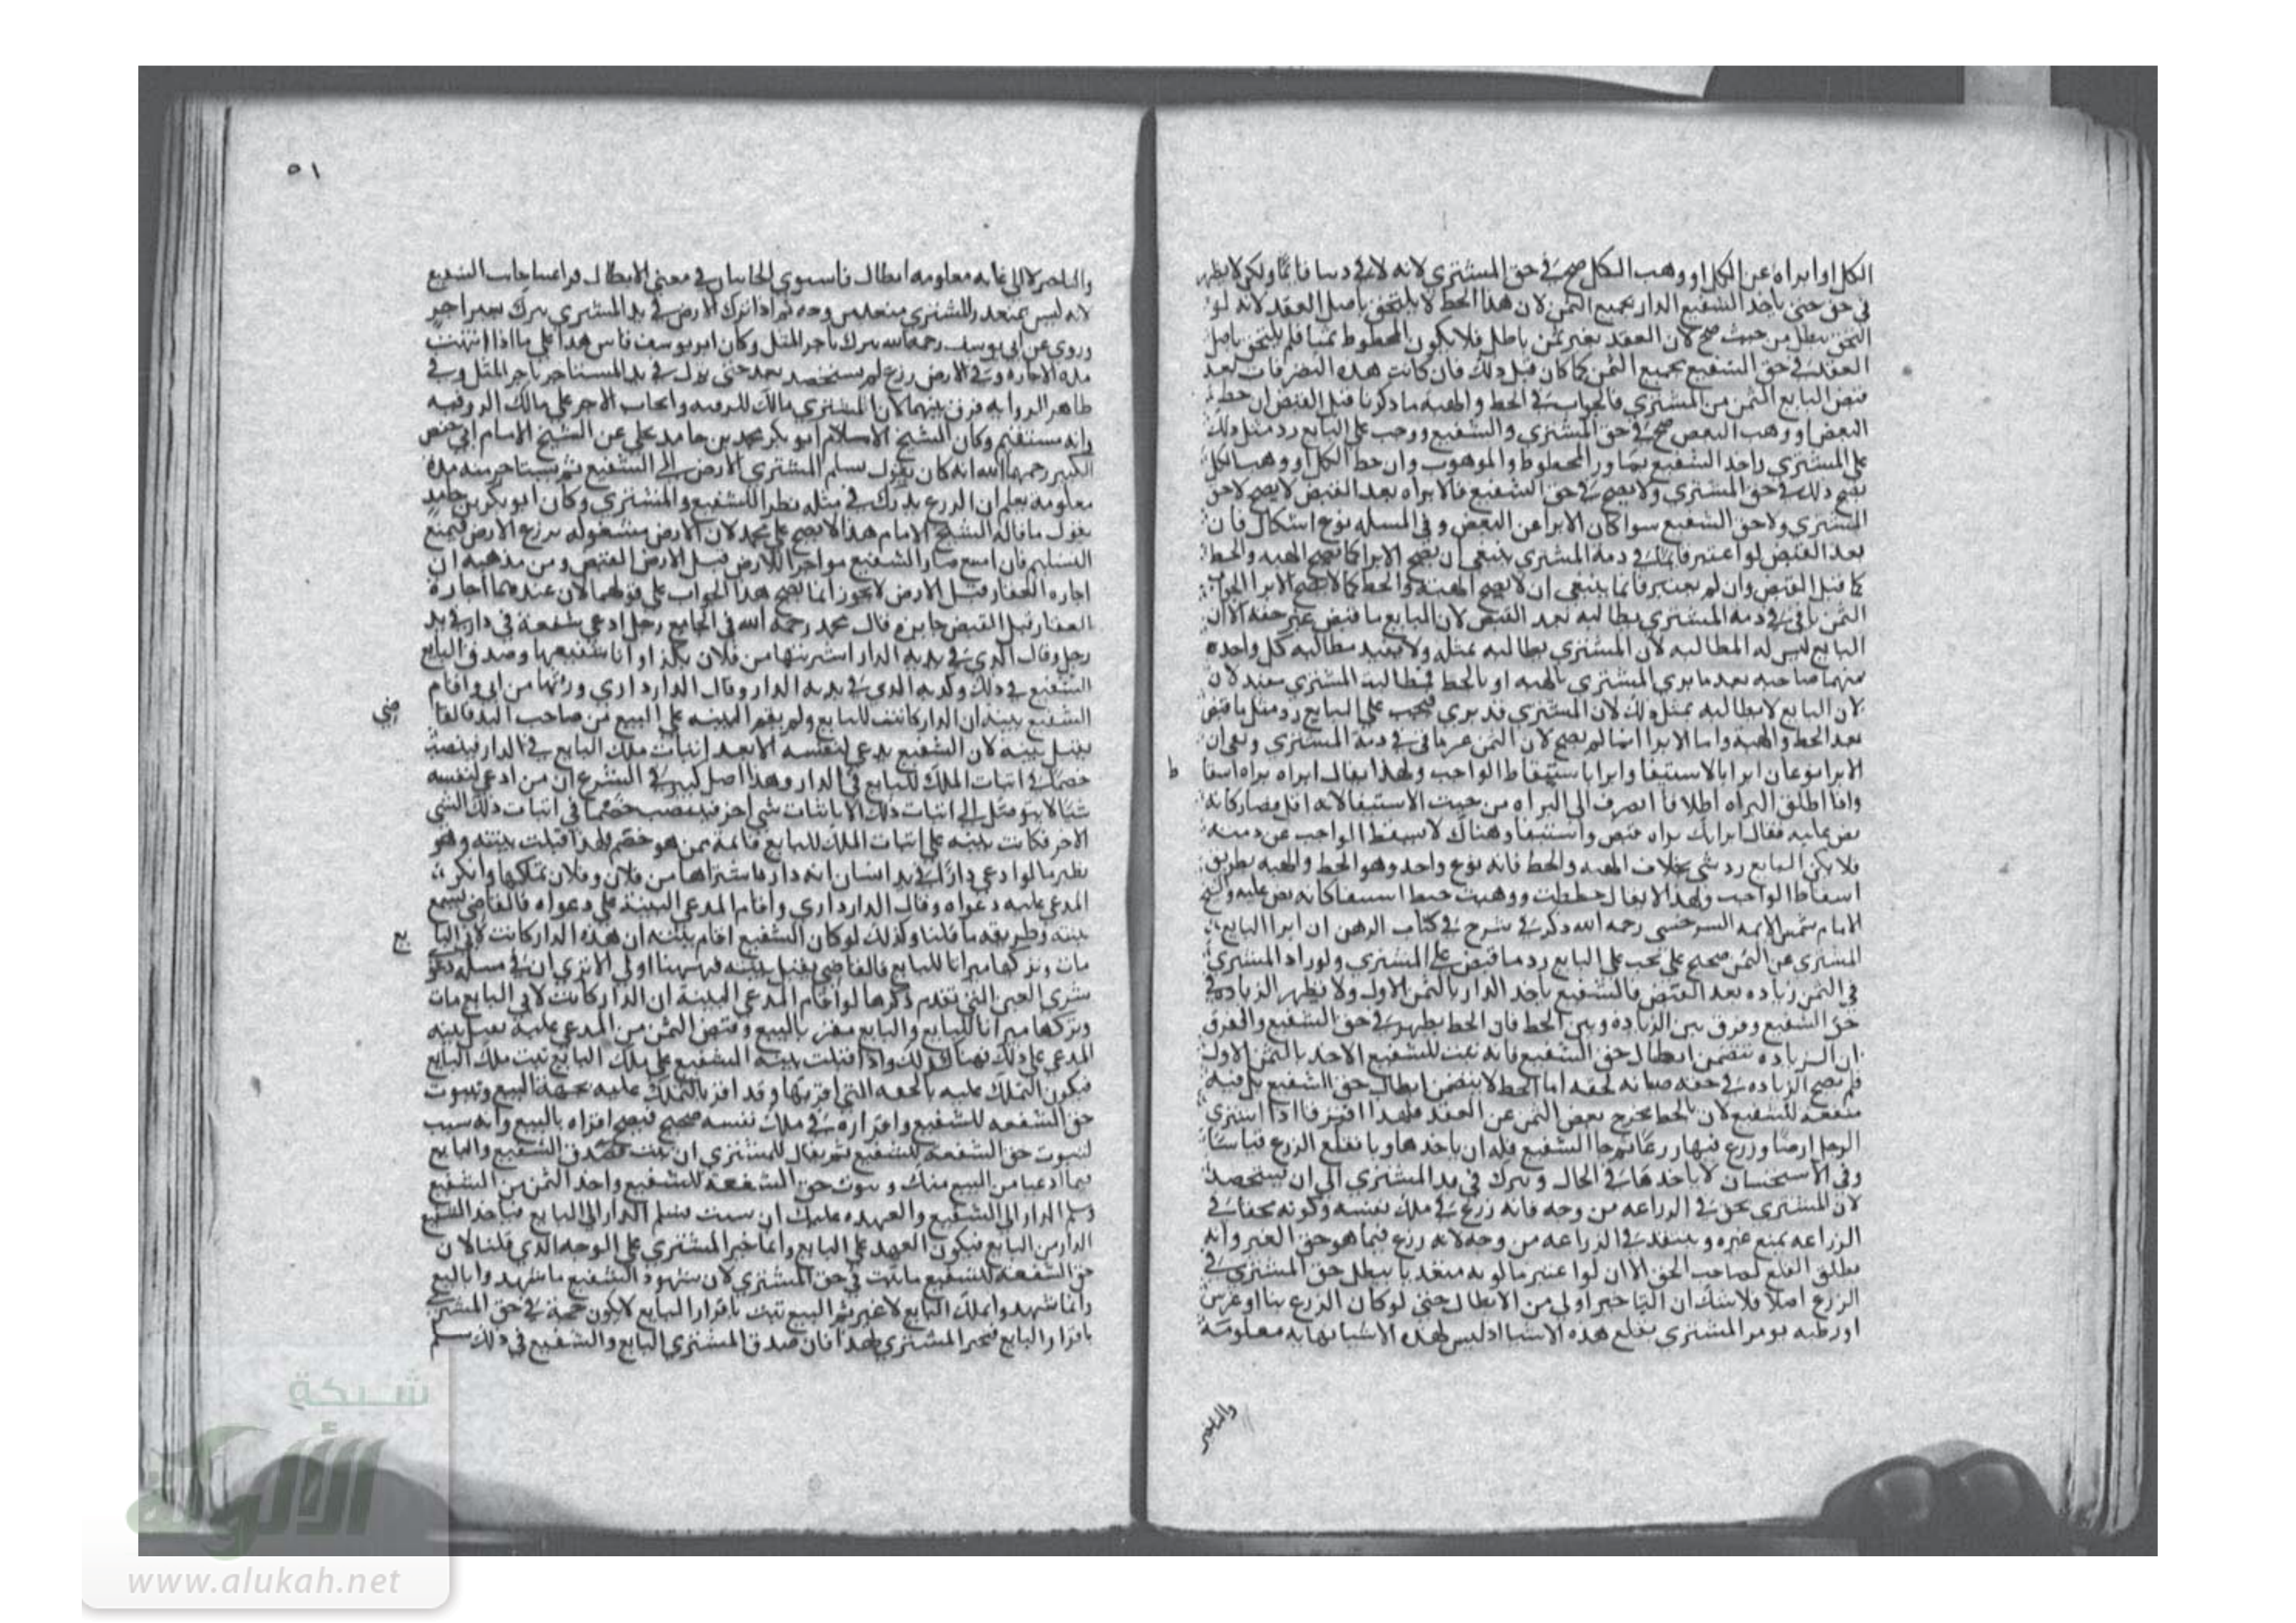 الكل او ابراه عن الكل او وهب الكل صح في حق المشتري لانه لاقى دينا قائما ولكن لا يظهر
في حق حتى ياخذ الشفيع الدار بجميع الثمن لان هذا الحط لا يلتحق باصل العقد لانه لو
التحق بطل من حيث صح لان العقد بغير ثمن باطل فلا يكون المحطوط ثمنا فلم يلتحق باصل
العقد في حق الشفيع بجميع الثمن كما كان قبل ذلك فان كانت هذه التصرفات بعد
قبض البايع الثمن من المشتري فالجواب في الحط والهبة ما ذكرنا قبل القبض ان حط
البعض او وهب البعض صح في حق المشتري والشفيع ووجب على البايع رد مثل ذلك
على المشتري واخذ الشفيع بما ورا المحطوط والموهوب وان حط الكل او وهب الكل
يصح ذلك في حق المشتري ولا يصح في حق الشفيع فالابراه بعد القبض لا يصح لا حق
المشتري ولا حق الشفيع سوا كان الابرا عن البعض وفي المسله نوع اشكال فان
بعد القبض لو اعتبر قائما في ذمة المشتري ينبغي ان يصح الابرا كما تصح الهبه والحط
كما قبل القبض وان لم يعتبر قائما ينبغي ان لا يصح الهبة والحط كما لا يصح الابرا الجواب
الثمن باقي في ذمه المشتري يطالبه بعد القبض لان البايع ما قبض غير حقه الا ان
البايع ليس له المطالبه لان المشتري يطالبه بمثله ولا يفيد مطالبه كل واحده
منهما صاحبه بعد ما بري المشتري بالهبه او بالحط فمطالبة المشتري مفيد لان
لان البايع لا يطالبه بمثل ذلك لان المشتري قد بري فيجب على البايع رد مثل ما قبض
بعد الحط والهبة واما الابرا انما لم يصح لان الثمن غير باقي في ذمة المشتري ولان
الابرا نوعان ابرا بالاستيفا وابرا باسقاط الواجب ولهذا يقال ابراه براه اسقا
ط
واذا اطلق البراه اطلاقا انصرف الى البراه من حيث الاستيفا لانه اقل فصار كانه
نص عليه فقال ابراتك براه قبض واستيفا وهناك لا يسقط الواجب عن ذمته
فلا يكن البايع رد شي بخلاف الهبه والحط فانه نوع واحد وهو الحط والهبه بطريق
اسقاط الواجب ولهذا لا يقال حططت ووهبت حط استيفا كانه نص عليه والشيخ
الامام شمس الايمه السرخسي رحمه الله ذكر في شرح في كتاب الرهن ان ابرا البايع
المشتري عن الثمن صحيح على يجب على البايع رد ما قبض على المشتري ولو زاد المشتري
في الثمن زياده بعد القبض فالشفيع ياخذ الدار بالثمن الاول ولا يظهر الزياده في
حق الشفيع وفرق بين الزياده وبين الحط فان الحط يظهر في حق الشفيع والفرق
ان الزياده تتضمن ابطال حق الشفيع فانه ثبت للشفيع الاخذ بالثمن الاول
فلم يصح الزياده في حقه صيانه لحقه اما الحط لا يتضمن ابطال حق الشفيع بل فيه
منفعه للشفيع لان بالحط يخرج بعض الثمن عن العقد فلهذا افترقا اذا اشتري
الرجل ارضا وزرع فيها زرعا ثم جا الشفيع فله ان ياخذها ويقلع الزرع قياسا
وفي الاستحسان لا ياخذها في الحال ويترك في يد المشتري الى ان يستحصد
لان المشتري محق في الزراعه من وجه فانه زرع في ملك نفسه وكونه محقا في
الزراعه يمنع غيره ويتعد في الزراعه من وجه لانه زرع فيما هو حق الغير وانه
يطلق القلع لصاحب الحق الا ان لو اعتبرنا كونه متعديا يبطل حق المشتري في
الزرع اصلا فلا شك ان التاخير اولى من الابطال حتى لو كان الزرع بنا او غرس
او رطبه يومر المشتري بقلع هذه الاشيا اذ ليس لهذه الاشيا نهايه معلومة
والتاخير
٥١
والتاخير لا الى غايه معلومه ابطال فاستوي الجانبان في معنى الابطال فراعينا جانب الشفيع
لانه ليس بمتعد والمشتري متعد من وجه ثم اذا ترك الارض في يد المشتري يترك بغير اجر
وروي عن ابي يوسف رحمه الله يترك باجر المثل وكان ابو يوسف قاس هذا على ما اذا انتهت
مده الاجاره وفي الارض زرع لم يستحصد بعد حتى يترك في يد المستاجر باجر المثل وفي
ظاهر الروايه فرق بينهما لان المشتري مالك للرقبه وايجاب الاجر على مالك الرقبه
وانه مستقيم وكان الشيخ الاسلام ابو بكر محمد بن حامد يحكي عن الشيخ الامام ابي حفص
الكبير رحمهما الله انه كان يقول يسلم المشتري الارض الى الشفيع ثم يستاجر منه مدة
معلومة يعلم ان الزرع يدرك في مثله نظرا للشفيع والمشتري وكان ابو بكر بن حامد
يقول ما قاله الشيخ الامام هذا لا يصح على محمد لان الارض مشغوله بزرع الارض فيمنع
التسليم فان امتنع صار الشفيع مواجرا للارض قبل الارض القبض ومن مذهبه ان
اجاره العقار قبل الارض لا يجوز انما يصح هذا الجواب على قولهما لان عندهما اجارة
العقار قبل القبض جايزه قال محمد رحمه الله في الجامع رجل ادعي شفعة في دار في يد
رجل وقال الذي في يديه الدار اشتريتها من فلان بكذا وانا شفيعها وصدق البايع
الشفيع في ذلك وكذبه الذي في يديه الدار وقال الدار داري ورثتها من ابي واقام
الشفيع بينة ان الدار كانت للبايع ولم يقم البينه على البيع من صاحب اليد فالقا
ضي
يقبل بينة لان الشفيع يدعي لنفسه الا بعد اثبات ملك البايع في الدار فينصب
خصما في اثبات الملك للبايع في الدار وهذا اصل كبير في الشرع ان من ادعي لنفسه
شيا لا يتوصل الى اثبات ذلك الا باثبات شي اخر ينتصب خصما في اثبات ذلك الشي
الاخر فكانت بينه على اثبات الملك للبايع قائمة ممن هو خصم فلهذا قبلت بينته وهو
نظير ما لو ادعي دارا في يد انسان انه دارها اشتراها من فلان وفلان تملكها وانكر
المدعي عليه دعواه وقال الدار داري واقام المدعي البينة على دعواه فالقاضي يسمع
بينته وطريقه ما قلنا وكذلك لو كان الشفيع اقام بينه ان هذه الدار كانت لابي البا
يع
مات وتركها ميراثا للبايع فالقاضي يقبل بينه فههنا اولى الا تري ان في مسله دعو
شري العين التي تقدم ذكرها لو اقام المدعي البينة ان الدار كانت لابي البايع مات
وتركها ميراثا للبايع والبايع مقر بالبيع وقبض الثمن من المدعي عليه تقبل بينه
المدعي على ذلك فهنا كذلك واذا قبلت بينه الشفيع على ملك البايع ثبت ملك البايع
فيكون التملك عليه بالجهه التي اقر بها وقد اقر بالتملك عليه بجهة البيع وثبوت
حق الشفعه للشفيع واقراره في ملك نفسه صحيح فيصح اقراه بالبيع وانه سبب
لثبوت حق الشفعه للشفيع ثم يقال للمشتري ان شئت فصدق الشفيع والبايع
فيما ادعيا من البيع منك وثبوت حق الشفعة للشفيع واخذ الثمن من الشفيع
وسلم الدار الى الشفيع والعهده عليك ان شيت فسلم الدار الى البايع فياخذ الشفيع
الدار من البايع فيكون العهد على البايع وانما خير المشتري على الوجه الذي قلنا لان
حق الشفعة للشفيع ما ثبت في حق المشتري لان شهود الشفيع ما شهدوا بالبيع
وانما شهدوا بملك البايع لا غير ثم البيع ثبت باقرار البايع لا يكون حجة في حق المشتري
باقرار البايع فيخير المشتري لهذا فان صدق المشتري البايع والشفيع في ذلك سلم
شبكة
الألوكة
www.alukah.net